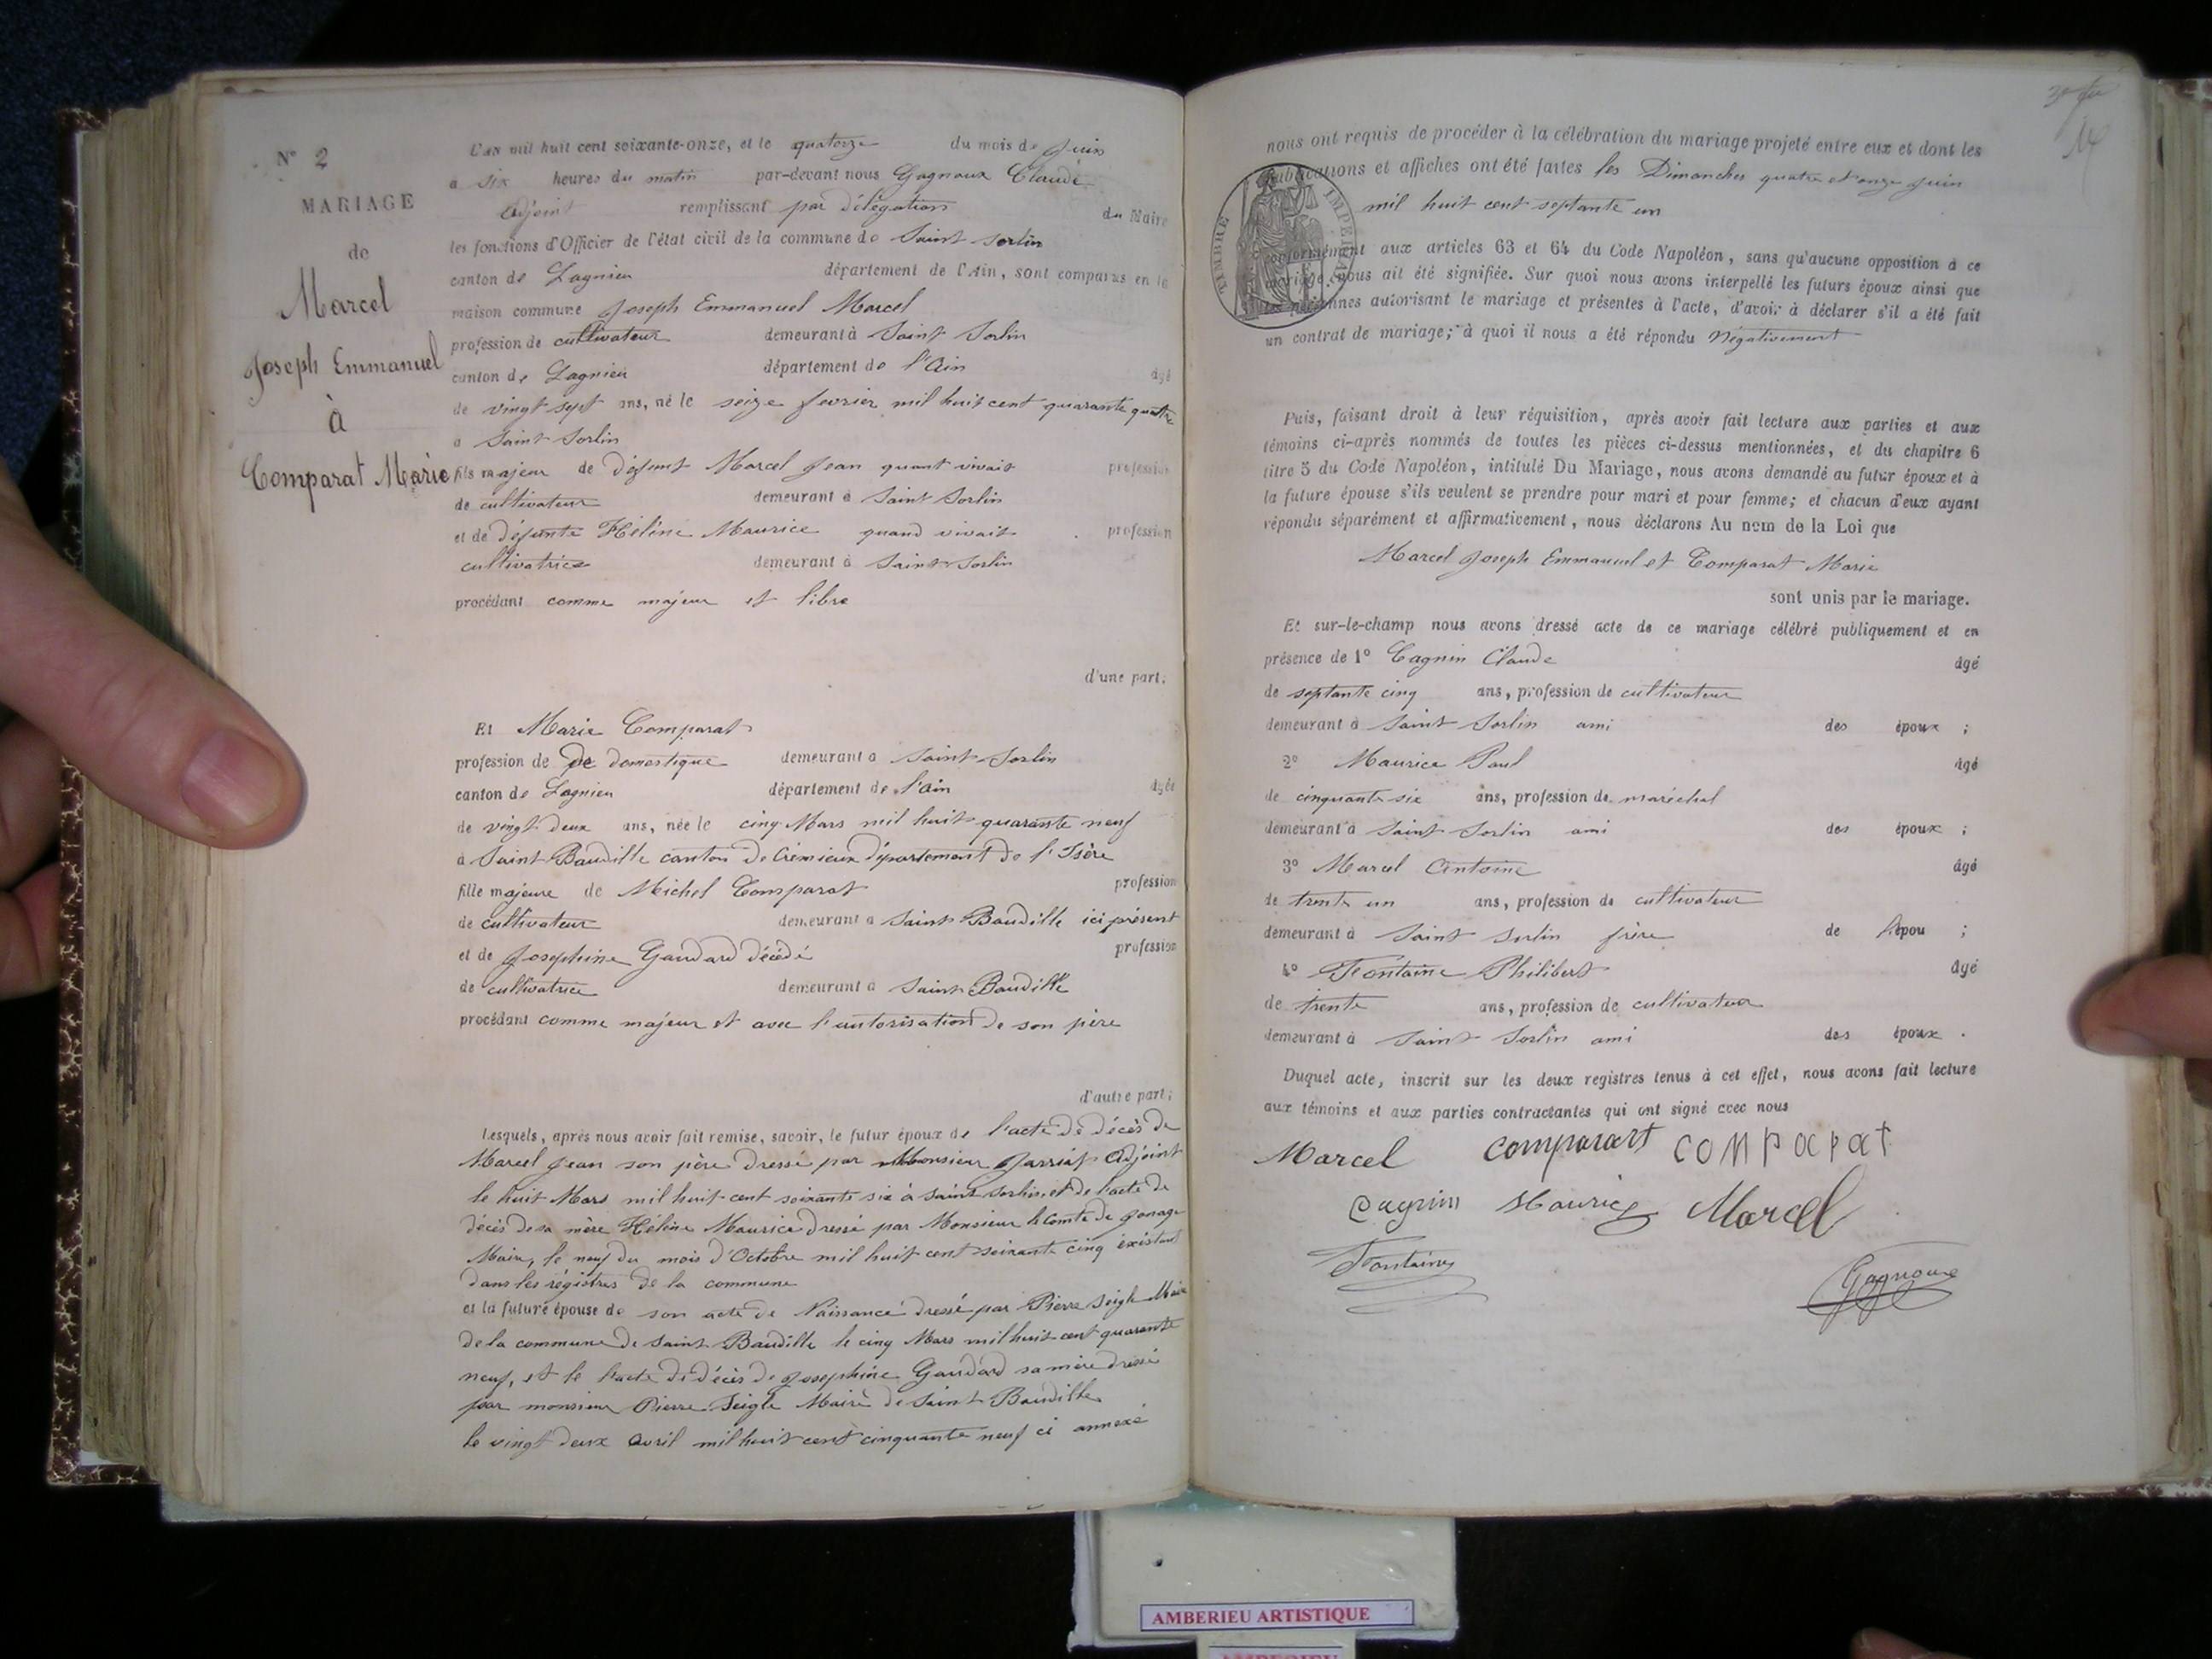 N° 2
MARIAGE
de
Marcel
Joseph Emmanuel
à
Comparat Marie
L'an mil huit cent soixante-onze, et le quatorze du mois de Juin
à six heures du matin par-devant nous Gagnoux Claude
adjoint remplissant par délégation du Maire
les fonctions d'Officier de l'état civil de la commune de Saint Sorlin
canton de Lagnieu département de l'Ain, sont comparus en la
maison commune Joseph Emmanuel Marcel
profession de cultivateur demeurant à Saint Sorlin
canton de Lagnieu département de l'Ain âgé
de vingt sept ans, né le seize fevrier mil huit cent quarante quatre
à Saint Sorlin
fils majeur de défunt Marcel Jean quant vivait profession
de cultivateur demeurant à Saint Sorlin
et de défunte Hélène Maurice quand vivait profession
cultivatrice demeurant à Saint Sorlin
procédant comme majeur et libre
d'une part.
Et Marie Comparat
profession de de domestique demeurant à Saint Sorlin
canton de Lagnieu département de l'Ain âgée
de vingt deux ans, née le cinq Mars mil huit quarante neuf
à Saint Baudille canton de Crémieux département de l'Isère
fille majeure de Michel Comparat profession
de cultivateur demeurant à Saint Baudille ici présent
et de Josephine Gaudard décédé profession
de cultivatrice demeurant à Saint Baudille
procédant comme majeur et avec l'autorisation de son père
d'autre part;
Lesquels, après nous avoir fait remise, savoir, le futur époux de l'acte de décès de
Marcel Jean son père dressé par Monsieur Jarriat Adjoint
le huit Mars mil huit cent soixante six à Saint Sorlin, et de l'acte de
décès de sa mère Hélène Maurice dressé par Monsieur le Comte de
Maire, le neuf du mois d'Octobre mil huit cent soixante cinq éxistant
dans les régistres de la commune
et la future épouse de son acte de Naissance dressé par Pierre Seigle Maire
de la commune de Saint Baudille le cinq Mars mil huit cent quarante
neuf, et le l'acte de décès de Josephine Gaudard sa mère dressé
par monsieur Pierre Seigle Maire de Saint Baudille
le vingt deux Avril mil huit cent cinquante neuf ci annexé
nous ont requis de procéder à la célébration du mariage projeté entre eux et dont les
publications et affiches ont été faites les Dimanches quatre et onze Juin
mil huit cent septante un
TIMBRE IMPERIAL
conformément aux articles 63 et 64 du Code Napoléon, sans qu'aucune opposition à ce
mariage nous ait été signifiée. Sur quoi nous avons interpellé les futurs époux ainsi que
les personnes autorisant le mariage et présentes à l'acte, d'avoir à déclarer s'il a été fait
un contrat de mariage; à quoi il nous a été répondu Négativement
Puis, faisant droit à leur réquisition, après avoir fait lecture aux parties et aux
témoins ci-après nommés de toutes les pièces ci-dessus mentionnées, et du chapitre 6
titre 5 du Code Napoléon, intitulé Du Mariage, nous avons demandé au futur époux et à
la future épouse s'ils veulent se prendre pour mari et pour femme; et chacun d'eux ayant
répondu séparément et affirmativement, nous déclarons Au nom de la Loi que
Marcel Joseph Emmanuel et Comparat Marie
sont unis par le mariage.
Et sur-le-champ nous avons dressé acte de ce mariage célébré publiquement et en
présence de 1° Cagnin Claude âgé
de septante cinq ans, profession de cultivateur
demeurant à Saint Sorlin ami des époux ;
2° Maurice Paul âgé
de cinquante six ans, profession de maréchal
demeurant à Saint Sorlin ami des époux ;
3° Marcel Antoine âgé
de trente un ans, profession de cultivateur
demeurant à Saint Sorlin frère de l'épou ;
4° Fontaine Philibert âgé
de trente ans, profession de cultivateur
demeurant à Saint Sorlin ami des époux .
Duquel acte, inscrit sur les deux registres tenus à cet effet, nous avons fait lecture
aux témoins et aux parties contractantes qui ont signé avec nous
Marcel comparart comparat
Cagnin Maurice Marcel
Fontaine Gagnoux
AMBERIEU ARTISTIQUE